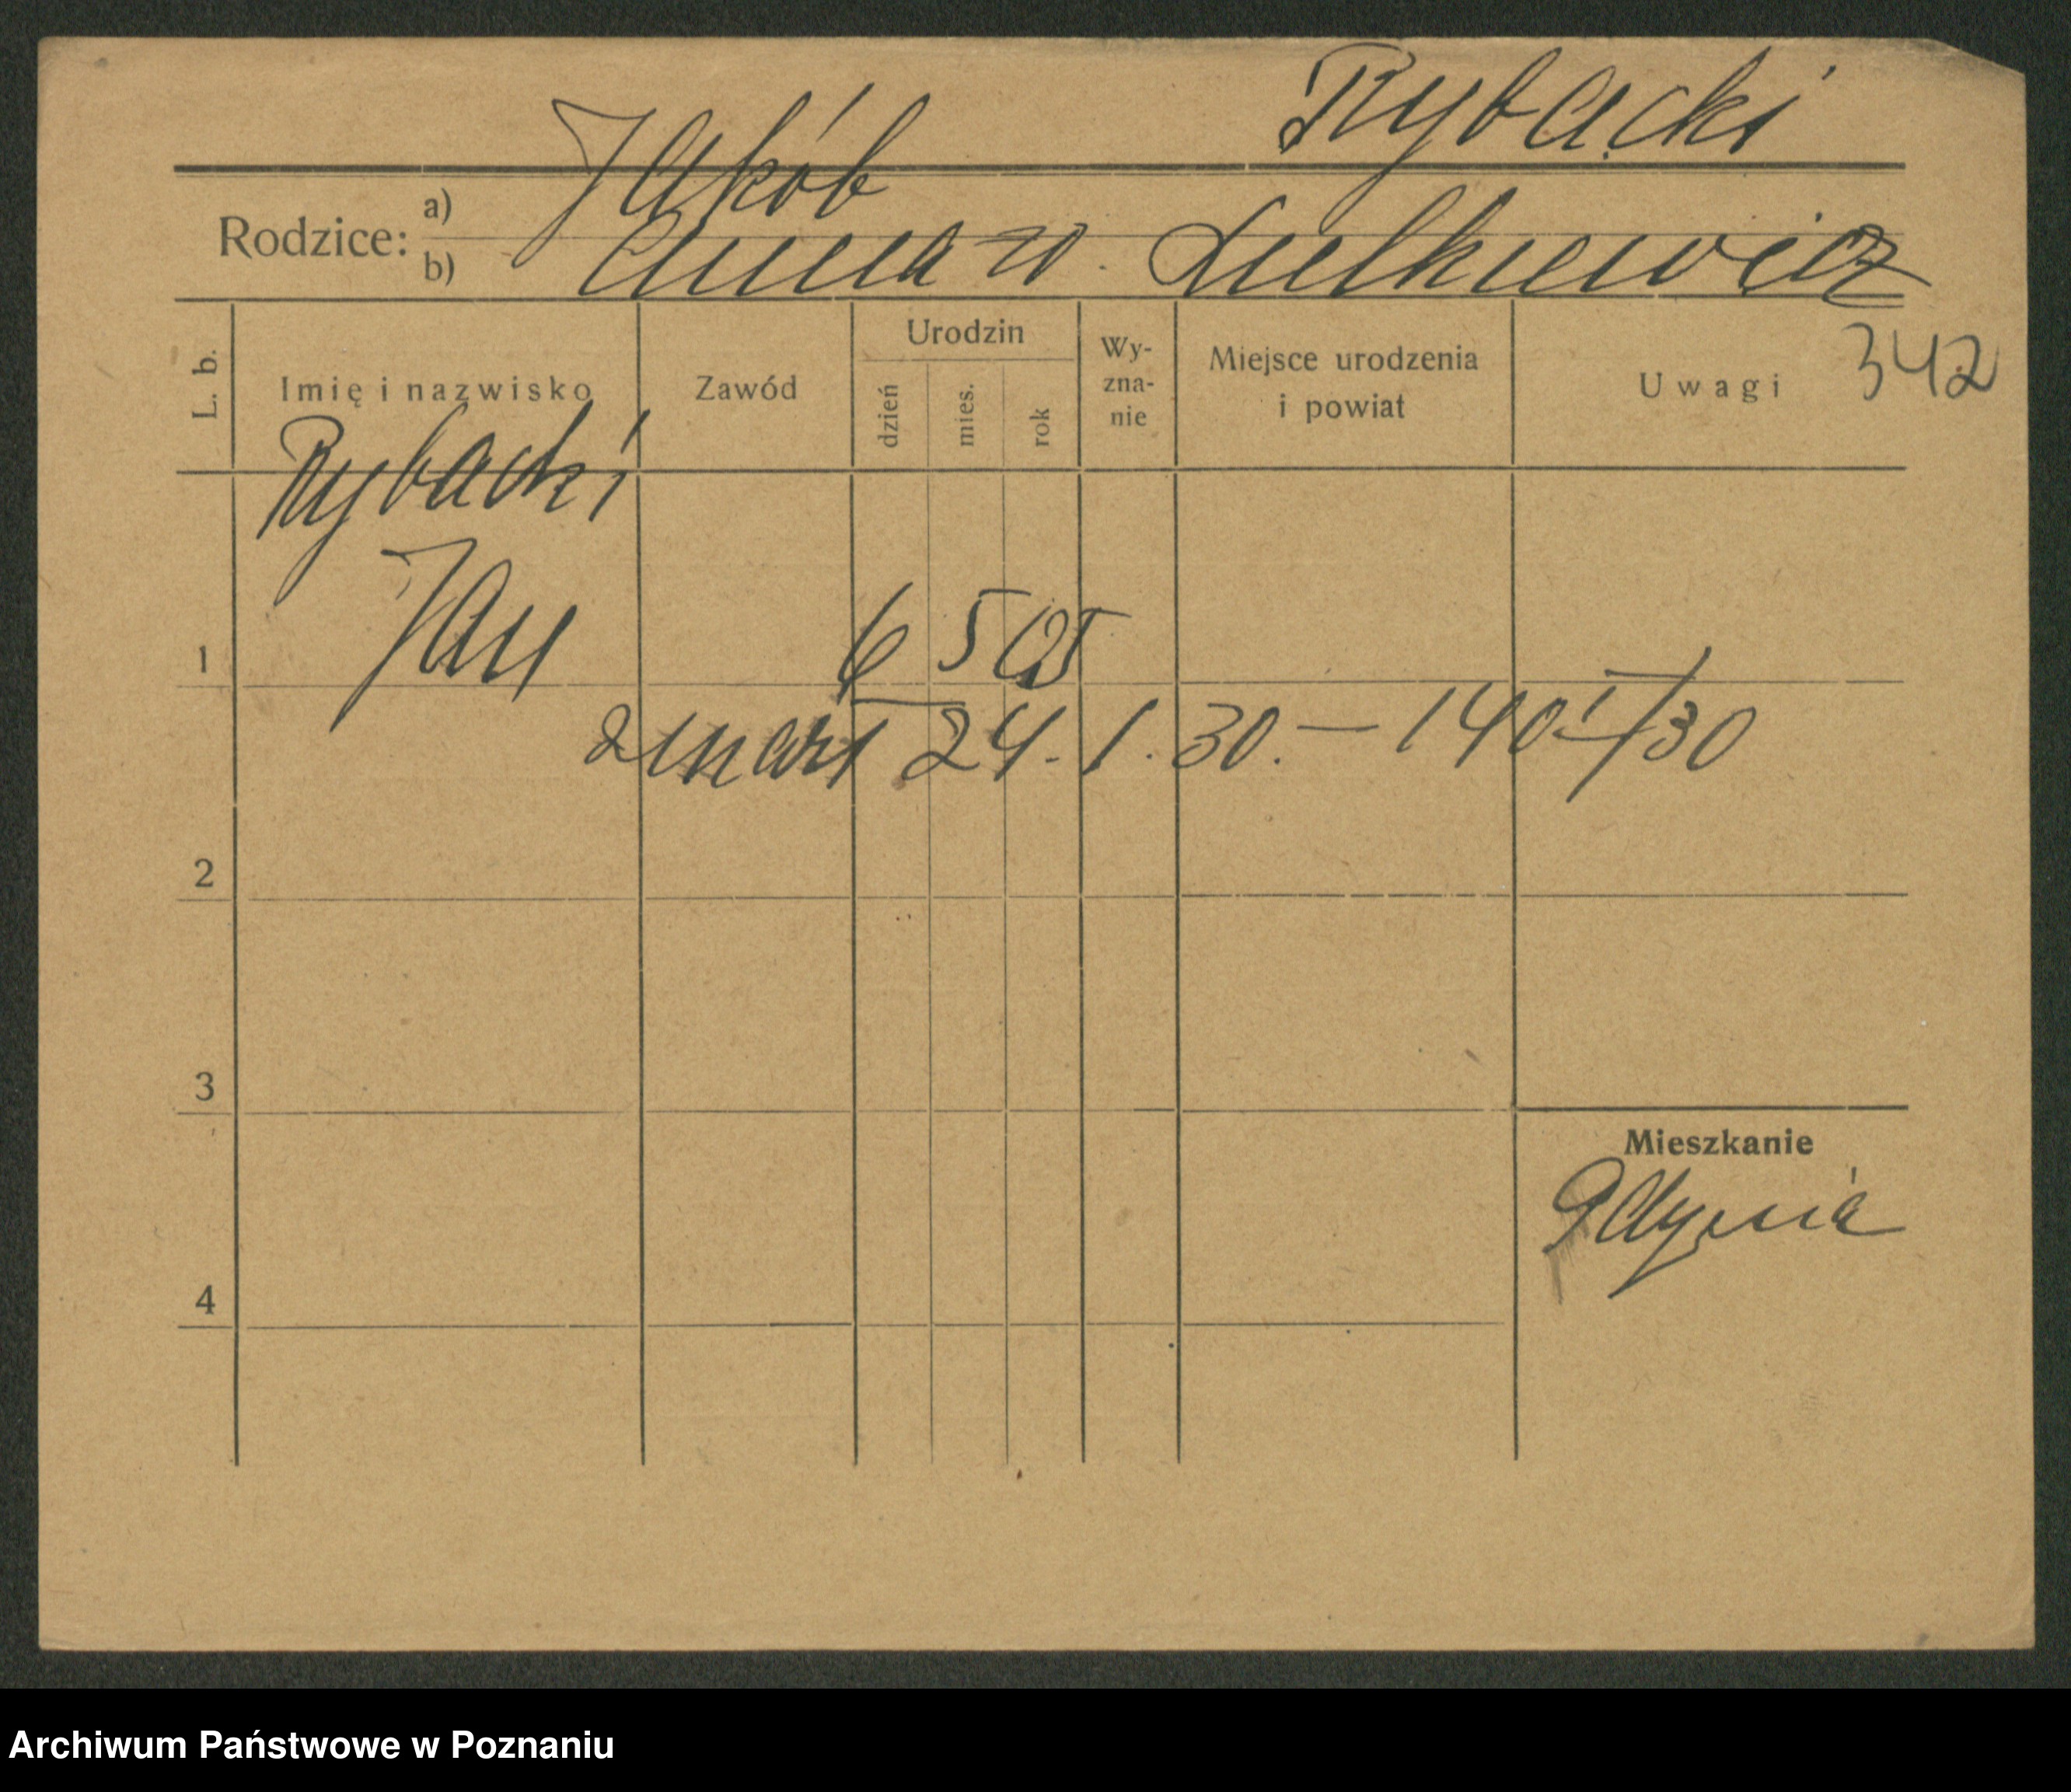 Rybacki
Rodzice: a) Jakób
b) Anna w. Lulkiewicz
L. b. Imię i nazwisko Zawód Urodzin dzień mies. rok Wy-zna-nie Miejsce urodzenia i powiat Uwagi 342
Rybacki
1 Jan 6 5
zmarł 24. 1. 30. — 140 I/30
2
3
Mieszkanie
Gdynia
4
Archiwum Państwowe w Poznaniu